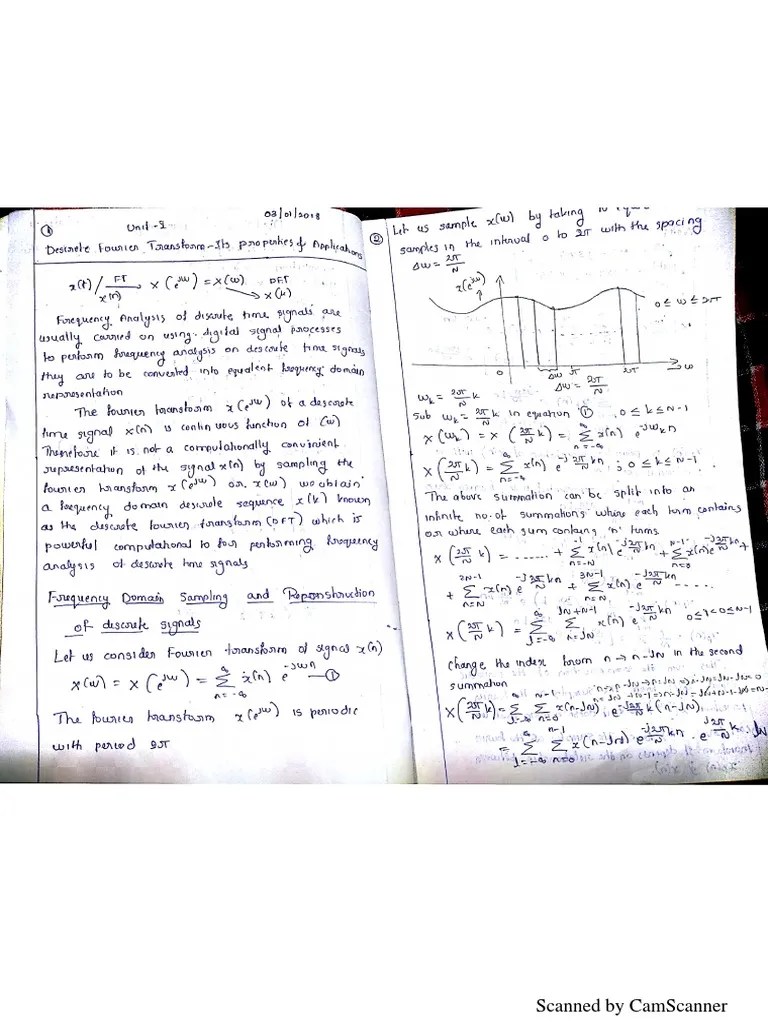 ①
03/01/2018
Unit-1
Descrete Fourier Transform-Its properties & Applications
x(t)/x(n) FT→ X(e^jω) = X(ω) DFT → X(k)
Frequency Analysis of discrete time signals are
usually carried on using digital signal processes
to perform frequency analysis on descrete time signals
they are to be converted into equalent frequency domain
representation
The fourier transform x(e^jω) of a descrete
time signal x(n) is continuous function of (ω)
Therefore it is not a computationally convinient
representation of the signal x(n) by sampling the
fourier transform x(e^jω) or x(ω) we obtain
a frequency domain descrete sequence x(k) known
as the descrete fourier transform (DFT) which is
powerful computational to for performing frequency
analysis of descrete time signals
Frequency Domain Sampling and Reconstruction
of discrete signals
Let us consider Fourier transform of signal x(n)
X(ω) = X(e^jω) = ∑_{n=-∞}^{∞} x(n) e^{-jωn} —①
The fourier transform x(e^jω) is periodic
with period 2π
②
Let us sample x(ω) by taking N
samples in the interval 0 to 2π with the spacing
Δω = 2π/N
x(e^jω)
0 ≤ ω ≤ 2π
0 Δω π 2π ω
Δω = 2π/N
ω_k = 2π/N k
Sub ω_k = 2π/N k in equation ①, 0 ≤ k ≤ N-1
X(ω_k) = X(2π/N k) = ∑_{n=-∞}^{∞} x(n) e^{-jω_k n}
X(2π/N k) = ∑_{n=-∞}^{∞} x(n) e^{-j2π/N kn} ; 0 ≤ k ≤ N-1
The above summation can be split into an
infinite no. of summations where each term contains
or where each sum contains 'n' terms
X(2π/N k) = ...... + ∑_{n=-N}^{-1} x(n) e^{-j2π/N kn} + ∑_{n=0}^{N-1} x(n) e^{-j2π/N kn} +
+ ∑_{n=N}^{2N-1} x(n) e^{-j2π/N kn} + ∑_{n=N}^{3N-1} x(n) e^{-j2π/N kn} .....
X(2π/N k) = ∑_{J=-∞}^{∞} ∑_{n=JN}^{JN+N-1} x(n) e^{-j2π/N kn}
change the index from n → n-JN in the second
summation
X(2π/N k) = ∑_{J=-∞}^{∞} ∑_{n=0}^{N-1} x(n-JN) . e^{-j2π/N k(n-JN)}
= ∑_{J=-∞}^{∞} ∑_{n=0}^{n-1} x(n-JN) e^{-j2π/N kn} . e^{j2π/N k. JN}
Scanned by CamScanner